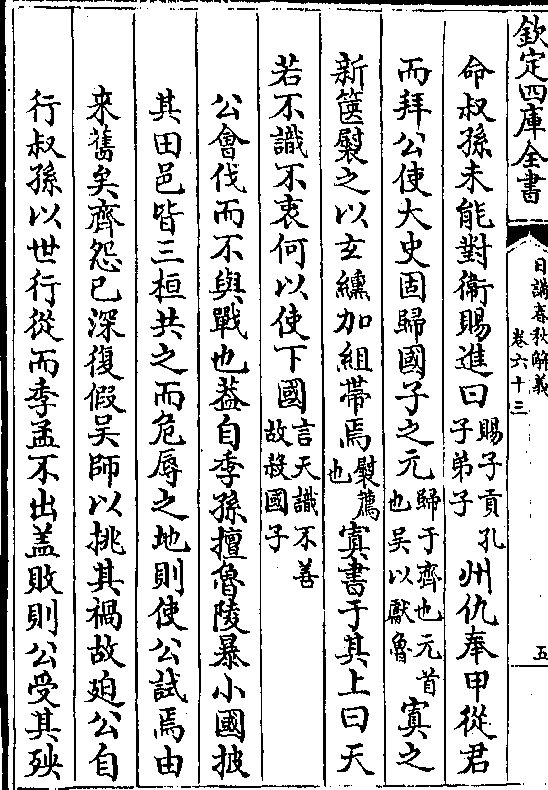 欽定四庫全書
日講春秋解義
卷六十三
五
命叔孫未能對衛賜進曰賜子貢孔子弟子州仇奉甲從君
而拜公使大史固歸國子之元歸于齊也元首也吳以獻魯寘之
新篋褽之以玄纁加組帶焉褽薦也寘書于其上曰天
若不識不衷何以使下國言天識不善故殺國子
公會伐而不與戰也葢自季孫擅魯陵暴小國披
其田邑皆三桓共之而危辱之地則使公試焉由
來舊矣齊怨已深復假吳師以挑其禍故廹公自
行叔孫以世行從而季孟不出盖敗則公受其殃